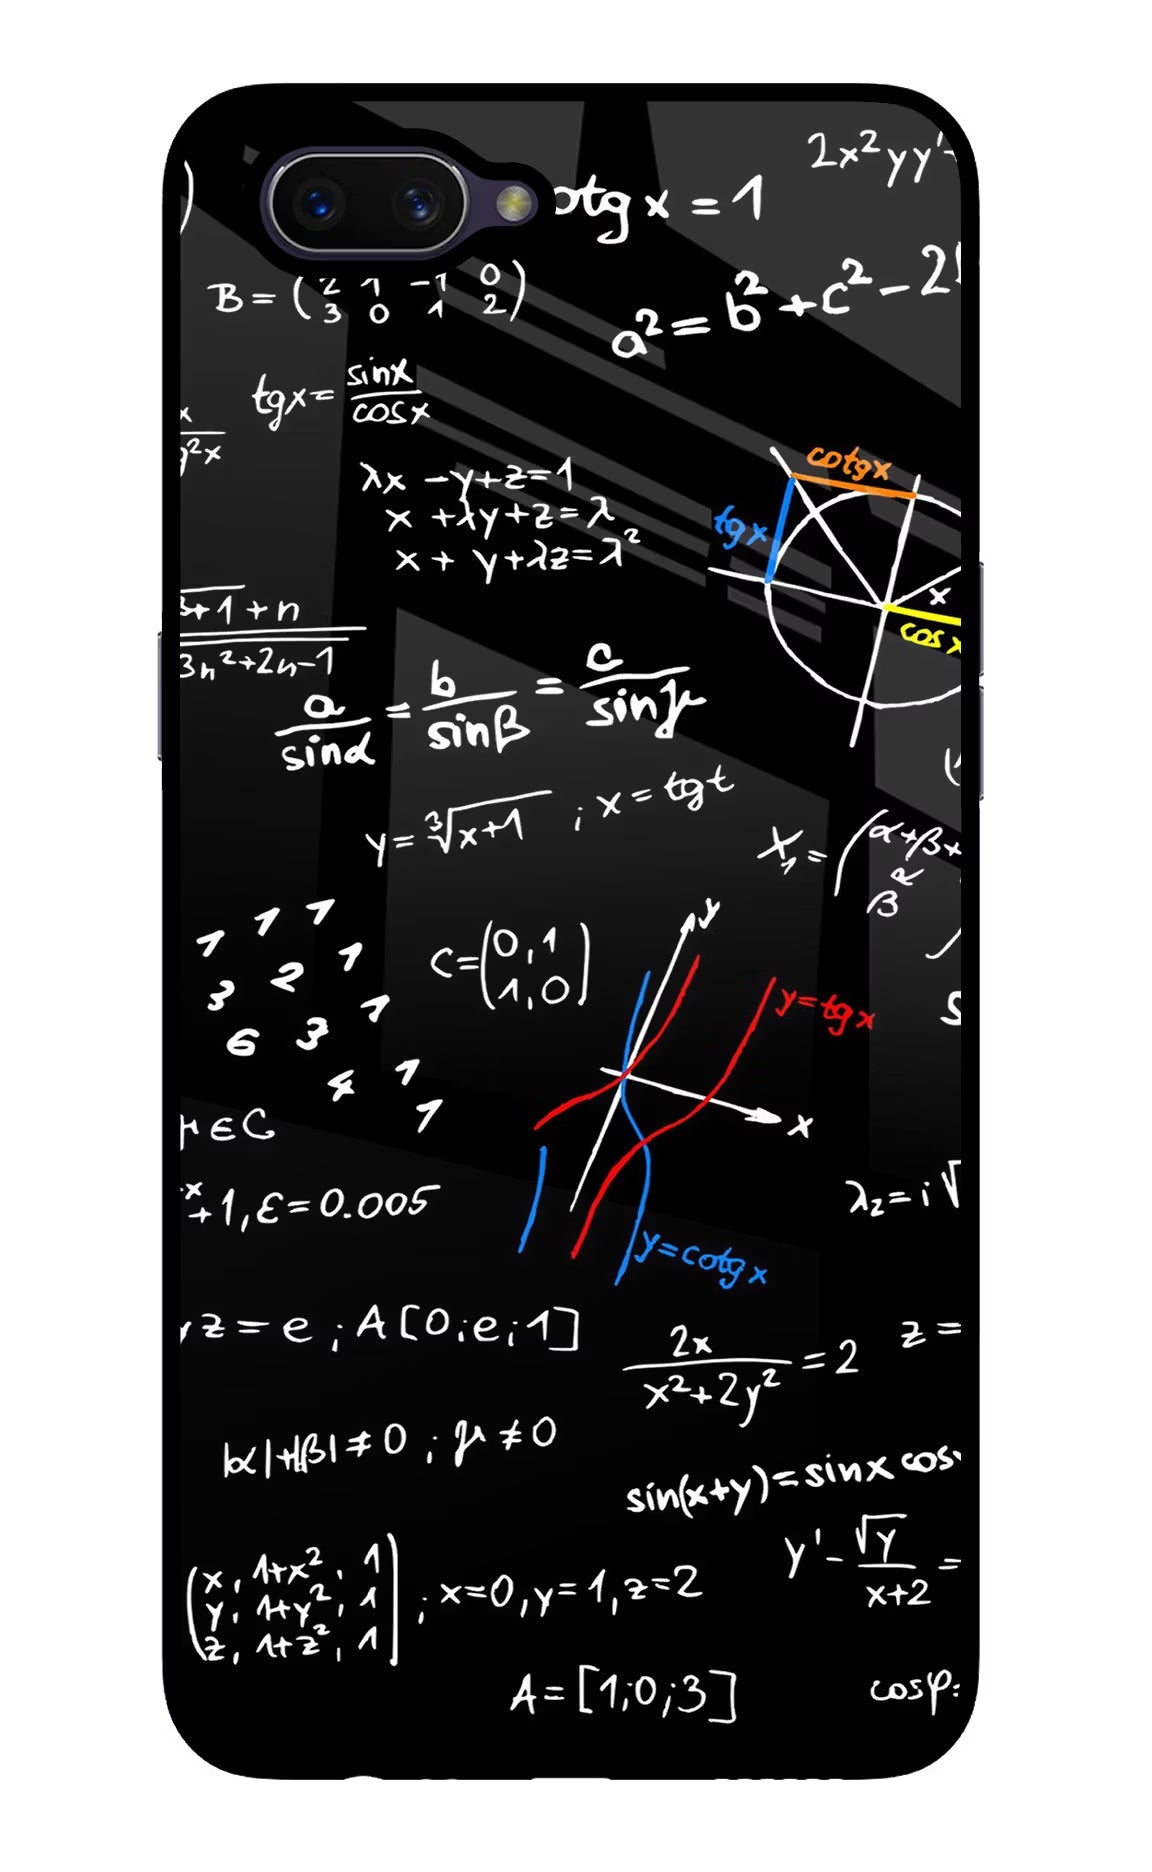 2x²yy'
otg x = 1
a² = b² + c² - 2
B = ( 2 1 -1 0
3 0 1 2 )
tgx = sinx
cosx
x
²x
λx - y + z = 1
x + λy + z = λ
x + y + λz = λ²
cotgx
tgx
x
cos x
3+1 + n
3n²+2n-1
a = b = c
sinα sinβ sinγ
y = ³√x+1 ; x = tgt
X₁ = ( α+β+
β α
1 1 1
3 2 1
6 3 1
4 1
1
C = ( 0,1
1,0 )
y
y=tgx
x
y=cotgx
μ∈C
x
+1, ε = 0.005
λ₂ = i√
z = e ; A[0;e;1]
2x
x²+2y² = 2
z =
|α|+|β| ≠ 0 ; μ ≠ 0
sin(x+y) = sinx cos
y' - √y
x+2 =
( x, 1+x², 1
y, 1+y², 1
z, 1+z², 1 | ; x=0, y=1, z=2
A = [1;0;3]
cosφ=